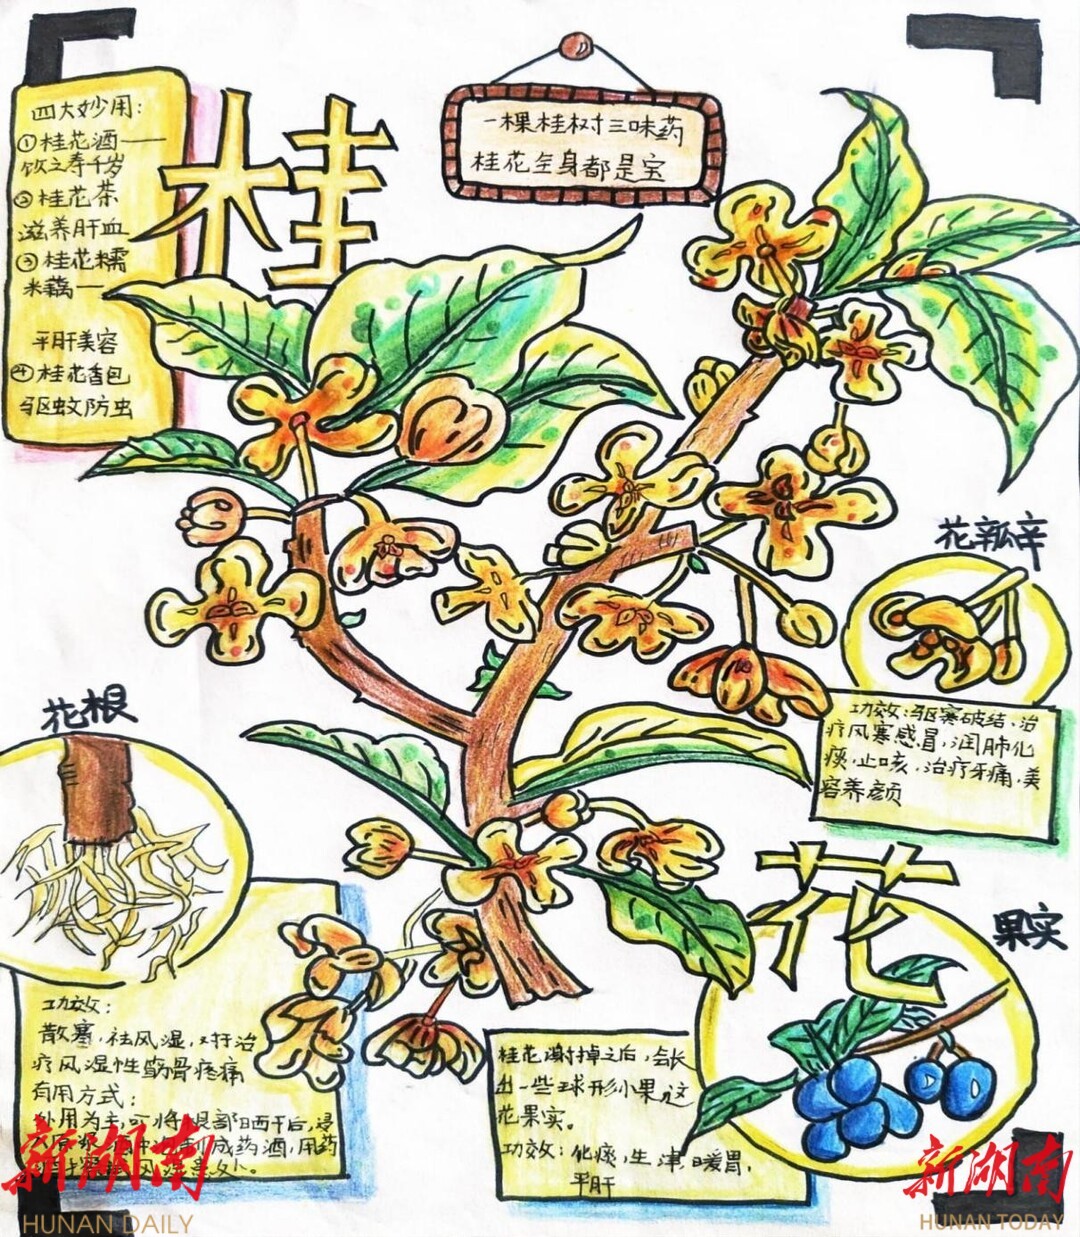 四大妙用：
①桂花酒——
饮之寿千岁
②桂花茶
滋养肝血
③桂花糯
米藕——
平肝美容
④桂花香包
驱蚊防虫
桂
一棵桂树三味药
桂花全身都是宝
花瓢辛
功效：驱寒破结、治
疗风寒感冒，润肺化
痰，止咳，治疗牙痛，美
容养颜
花根
功效：
散寒，祛风湿，对于治
疗风湿性筋骨疼痛
有用方式：
外用为主，可将根部晒干后，浸
制成药酒，用药
花
果实
桂花谢掉之后，会长
出一些球形小果这
花果实。
功效：化痰，生津，暖胃，
平肝
新湖南
HUNAN DAILY
新湖南
HUNAN TODAY